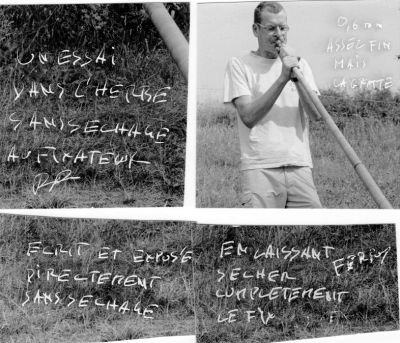 UN ESSAI
DANS L'HERBE
SANS SECHAGE
AU FIXATEUR
0,6 mm
ASSEZ FIN
MAIS
LA GRATTE
ECRIT ET EXPOSE
DIRECTEMENT
SANS SECHAGE
EN LAISSANT
SECHER
COMPLETEMENT
LE FIX